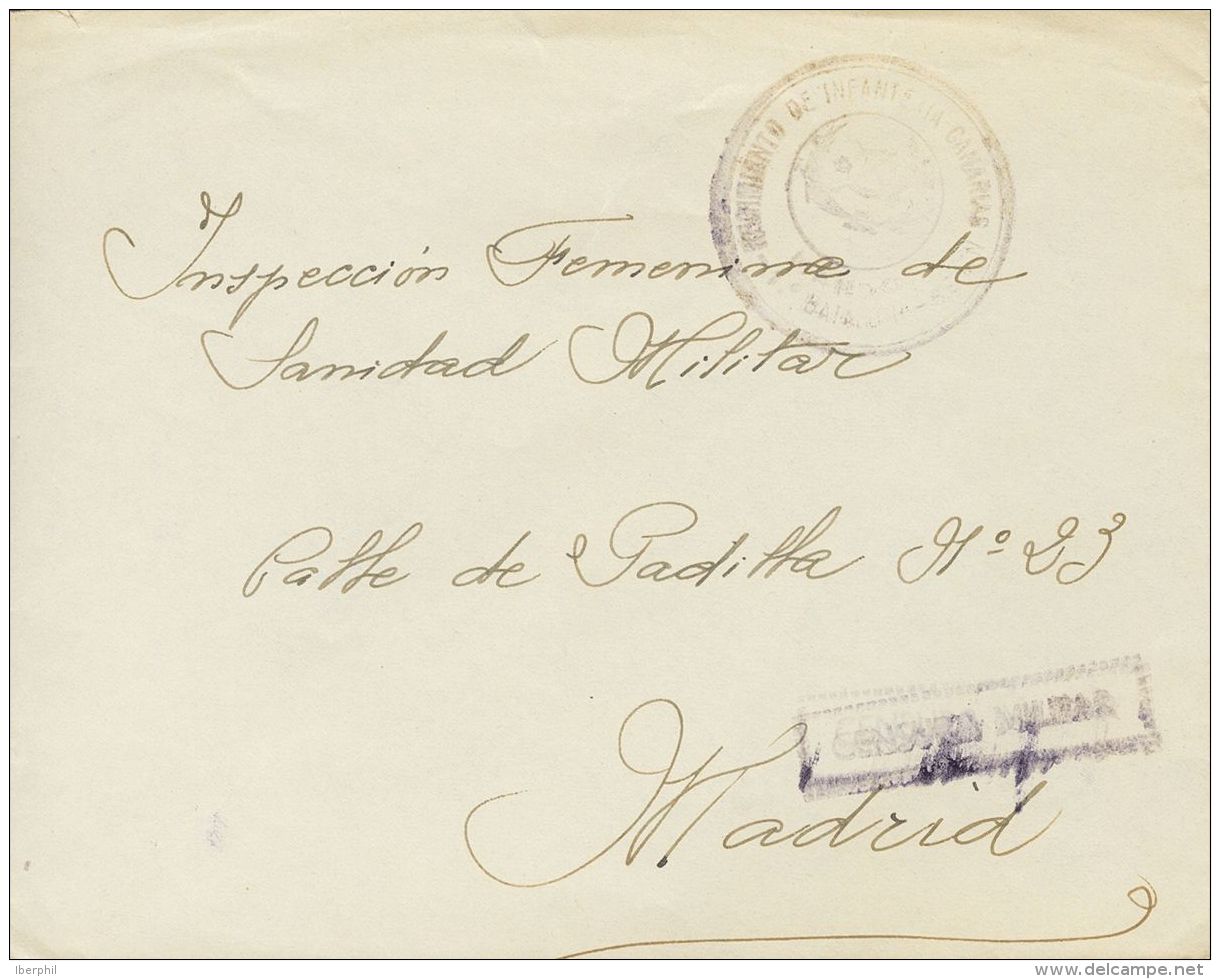 REGIMIENTO DE INFANTERIA CANARIAS
Inspección Femenina de
Sanidad Militar
Calle de Padilla Nº 23
CENSURA MILITAR
Madrid
Iberphil
delcampe.net